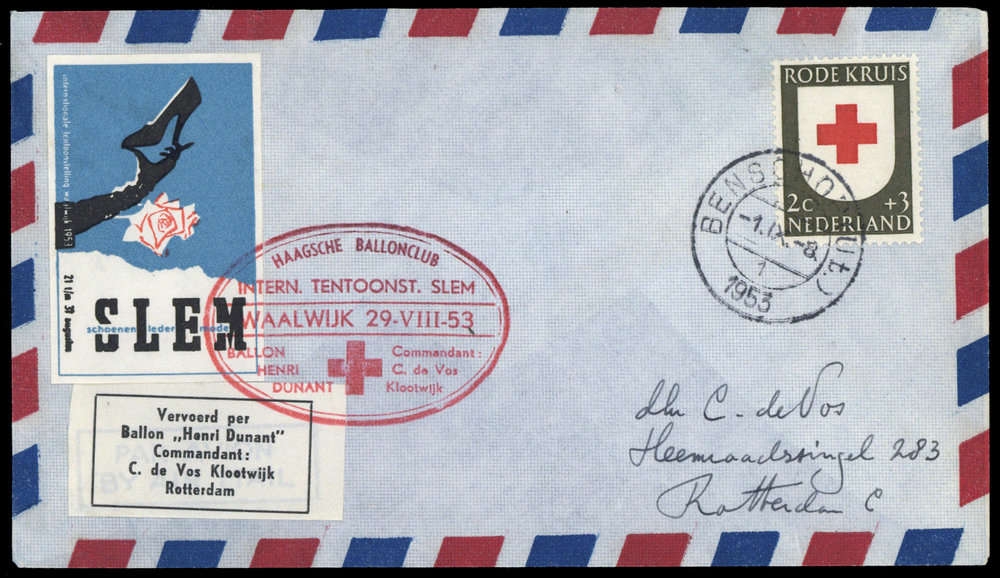 RODE KRUIS
2c +3
NEDERLAND
BENSCHOP (Ut.)
-1.IX.-8
1
1953
internationale tentoonstelling waalwijk 1953
21 t/m 30 augustus
SLEM
schoenen leder mode
HAAGSCHE BALLONCLUB
INTERN. TENTOONST. SLEM
WAALWIJK 29-VIII-53
BALLON
HENRI
DUNANT
Commandant:
C. de Vos
Klootwijk
Vervoerd per
Ballon „Henri Dunant"
Commandant:
C. de Vos Klootwijk
Rotterdam
PAR AVION
BY AIR MAIL
dhr C. de Vos
Heemraadssingel 283
Rotterdam C